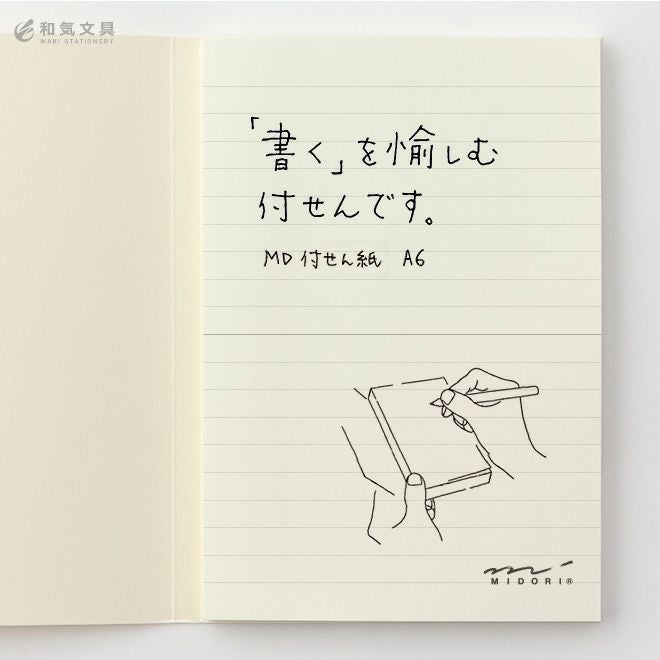 和気文具
WAKI STATIONERY
「書く」を愉しむ
付せんです。
MD 付せん紙 A6
MIDORI®